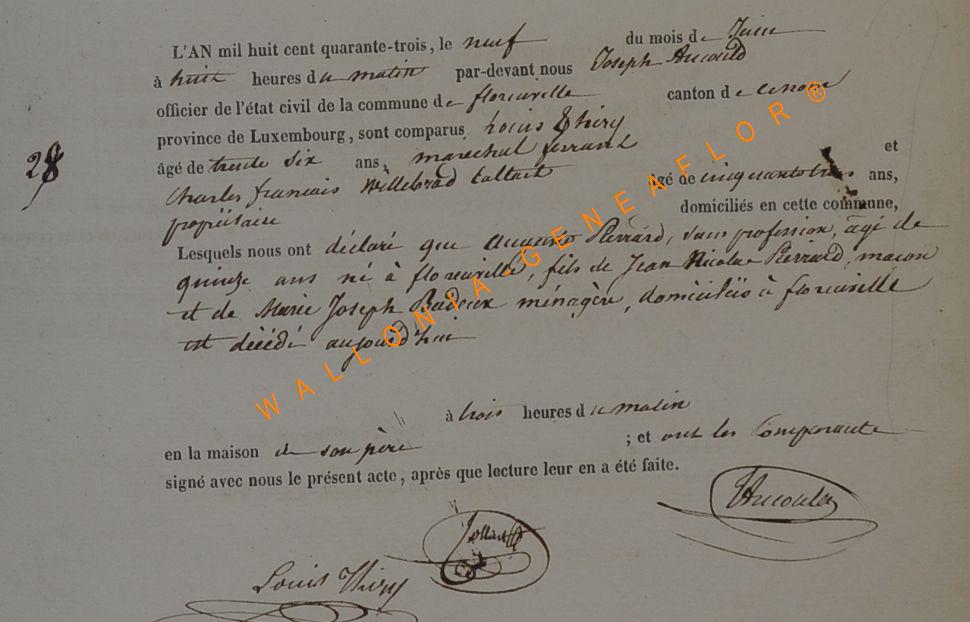 L'AN mil huit cent quarante-trois, le neuf du mois de Juin
à huit heures du matin par-devant nous Joseph
officier de l'état civil de la commune de florenville canton de
province de Luxembourg, sont comparus Louis Thiry
28
âgé de trente six ans, maréchal ferrant et
Charles francois Willebrod âgé de cinquante trois ans,
propriétaire domiciliés en cette commune,
Lesquels nous ont déclaré que Auguste Pierrard, sans profession, âgé de
quinze ans né à florenville, fils de Jean Nicolas Pierrard, macon
et de Marie Joseph ménagère, domiciliés à florenville
est décédé aujourd'hui
à trois heures du matin
en la maison de son père ; et ont les Comparants
signé avec nous le présent acte, après que lecture leur en a été faite.
Louis Thiry
WALLONIA-GENEAFLOR®